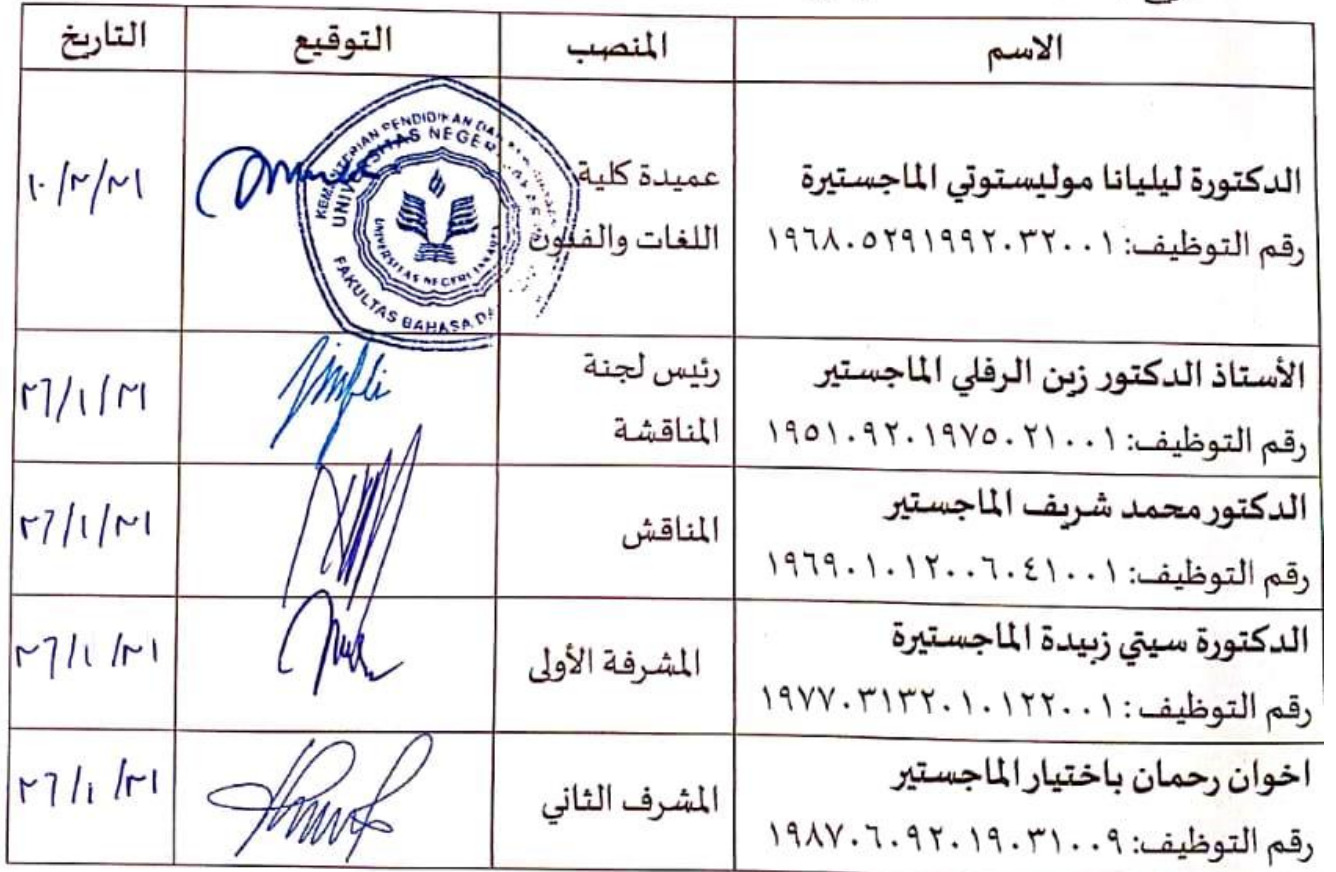 الاسم المنصب التوقيع التاريخ
الدكتورة ليليانا موليستوتي الماجستيرة
رقم التوظيف: ١٩٦٨٠٥٢٩١٩٩٢٠٣٢٠٠١
عميدة كلية
اللغات والفنون
KEMENTERIAN PENDIDIKAN DAN
UNIVERSITAS NEGERI
UNIVERSITAS NEGERI JAKARTA
FAKULTAS BAHASA DA
١٠/٢/٢١
الأستاذ الدكتور زين الرفلي الماجستير
رقم التوظيف: ١٩٥١٠٩٢٠١٩٧٥٠٢١٠٠١
رئيس لجنة
المناقشة
٢٦/١/٢١
الدكتور محمد شريف الماجستير
رقم التوظيف: ١٩٦٩٠١٠١٢٠٠٦٠٤١٠٠١
المناقش
٢٦/١/٢١
الدكتورة سيتي زبيدة الماجستيرة
رقم التوظيف: ١٩٧٧٠٣١٣٢٠١٠١٢٢٠٠١
المشرفة الأولى
٢٦/١/٢١
اخوان رحمان باختيار الماجستير
رقم التوظيف: ١٩٨٧٠٦٠٩٢٠١٩٠٣١٠٠٩
المشرف الثاني
٢٦/١/٢١